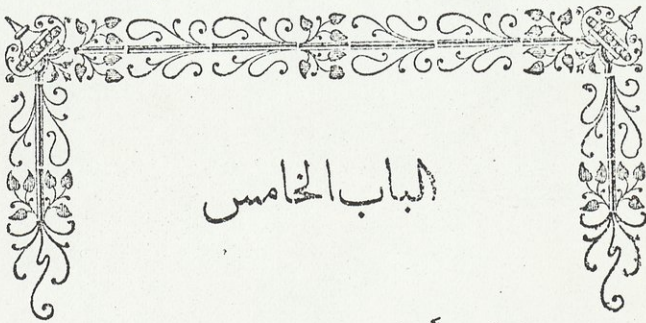 الباب الخامس